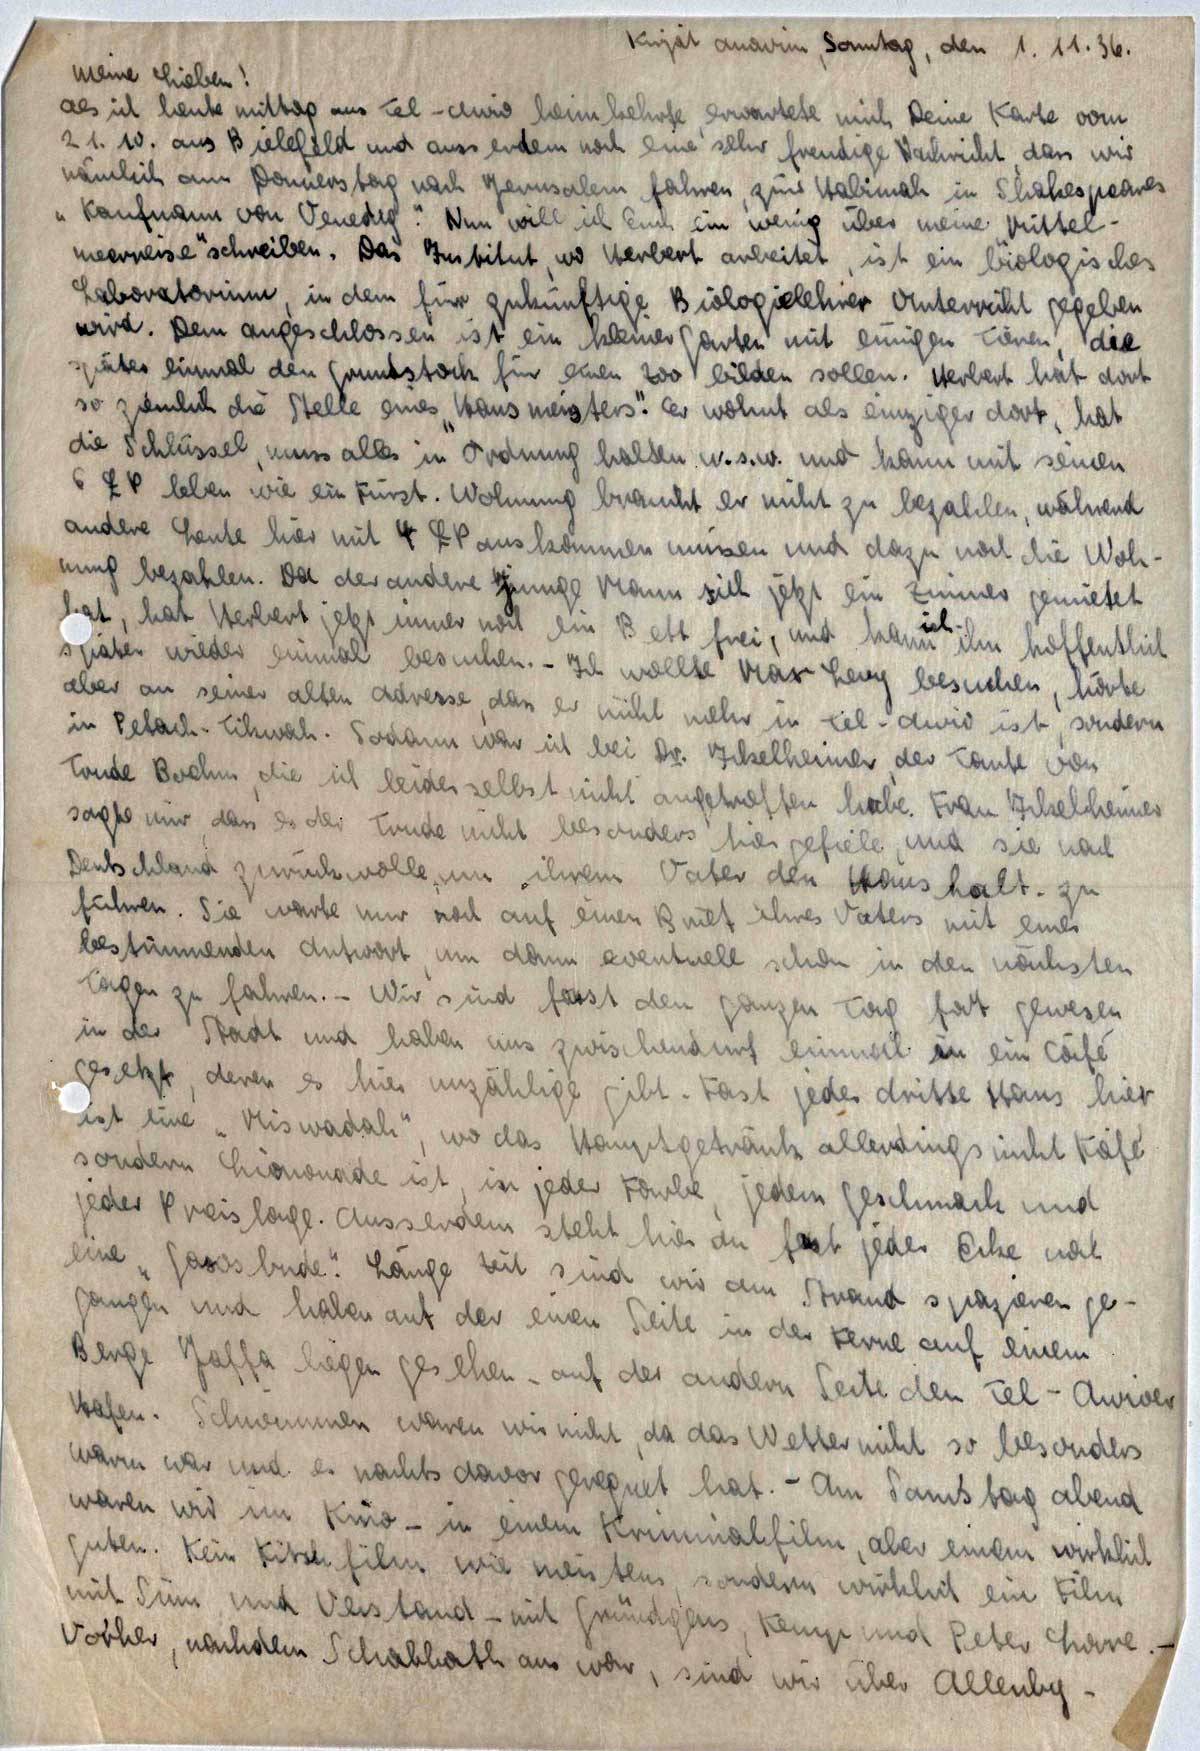 Kirjat anavim, Sonntag, den 1.11.36.
Meine Lieben!
Als ich heute mittag aus Tel-Awiv heimkehrte, erwartete mich Deine Karte vom
21.10. aus Bielefeld und ausserdem noch eine sehr freudige Nachricht, dass wir
nämlich am Donnerstag nach Jerusalem fahren, zur Habimah in Shakespeares
"Kaufmann von Venedig". Nun will ich Euch ein wenig über meine "Mittel-
meerreise" schreiben. Das Institut, wo Herbert arbeitet, ist ein biologisches
Laboratorium, in dem für zukünftige Biologielehrer Unterricht gegeben
wird. Dem angeschlossen ist ein kleiner Garten mit einigen Tieren, die
später einmal den Grundstock für einen Zoo bilden sollen. Herbert hat dort
so ziemlich die Stelle eines "Hausmeisters". Er wohnt als einziger dort, hat
die Schlüssel, muss alles in Ordnung halten u.s.w. und kann mit seinen
6 £P leben wie ein Fürst. Wohnung braucht er nicht zu bezahlen, während
andere Leute hier mit 4 £P auskommen müssen und dazu noch die Woh-
nung bezahlen. Da der andere junge Mann sich jetzt ein Zimmer gemietet
hat, hat Herbert jetzt immer noch ein Bett frei, und kann ich ihn hoffentlich
später wieder einmal besuchen. - Ich wollte Max Levy besuchen, hörte
aber an seiner alten Adresse, dass er nicht mehr in Tel-Awiv ist, sondern
in Petach-Tikwah. Sodann war ich bei Dr. Ickelheimer, der Tante von
Trude Boehm, die ich leider selbst nicht angetroffen habe. Frau Ickelheimer
sagte mir, dass es der Trude nicht besonders hier gefiele, und sie nach
Deutschland zurückwolle, um ihrem Vater den Haushalt zu
führen. Sie warte nur noch auf einen Brief ihres Vaters mit einer
bestimmenden Antwort, um dann eventuell schon in den nächsten
Tagen zu fahren. - Wir sind fast den ganzen Tag fort gewesen
in der Stadt und haben uns zwischendurch einmal in ein Café
gesetzt, deren es hier unzählige gibt. Fast jedes dritte Haus hier
ist eine "Miswadah", wo das Hauptgetränk allerdings nicht Kafé
sondern Limonade ist, in jeder Farbe, jedem Geschmack und
jeder Preislage. Ausserdem steht hier an fast jeder Ecke noch
eine "Gasosbude". Lange Zeit sind wir am Strand spazieren ge-
gangen und haben auf der einen Seite in der Ferne auf einem
Berge Jaffa liegen gesehen - auf der andern Seite den Tel-Awiver
Hafen. Schwimmen waren wir nicht, da das Wetter nicht so besonders
warm war und es nachts davor geregnet hat. - Am Samstag abend
waren wir im Kino - in einem Kriminalfilm, aber einem wirklich
guten. Kein Kitschfilm wie meistens, sondern wirklich ein Film
mit Sinn und Verstand - mit Gründgens, Kemp und Peter Lorre. -
Vorher, nachdem Schabbath aus war, sind wir über Allenby-